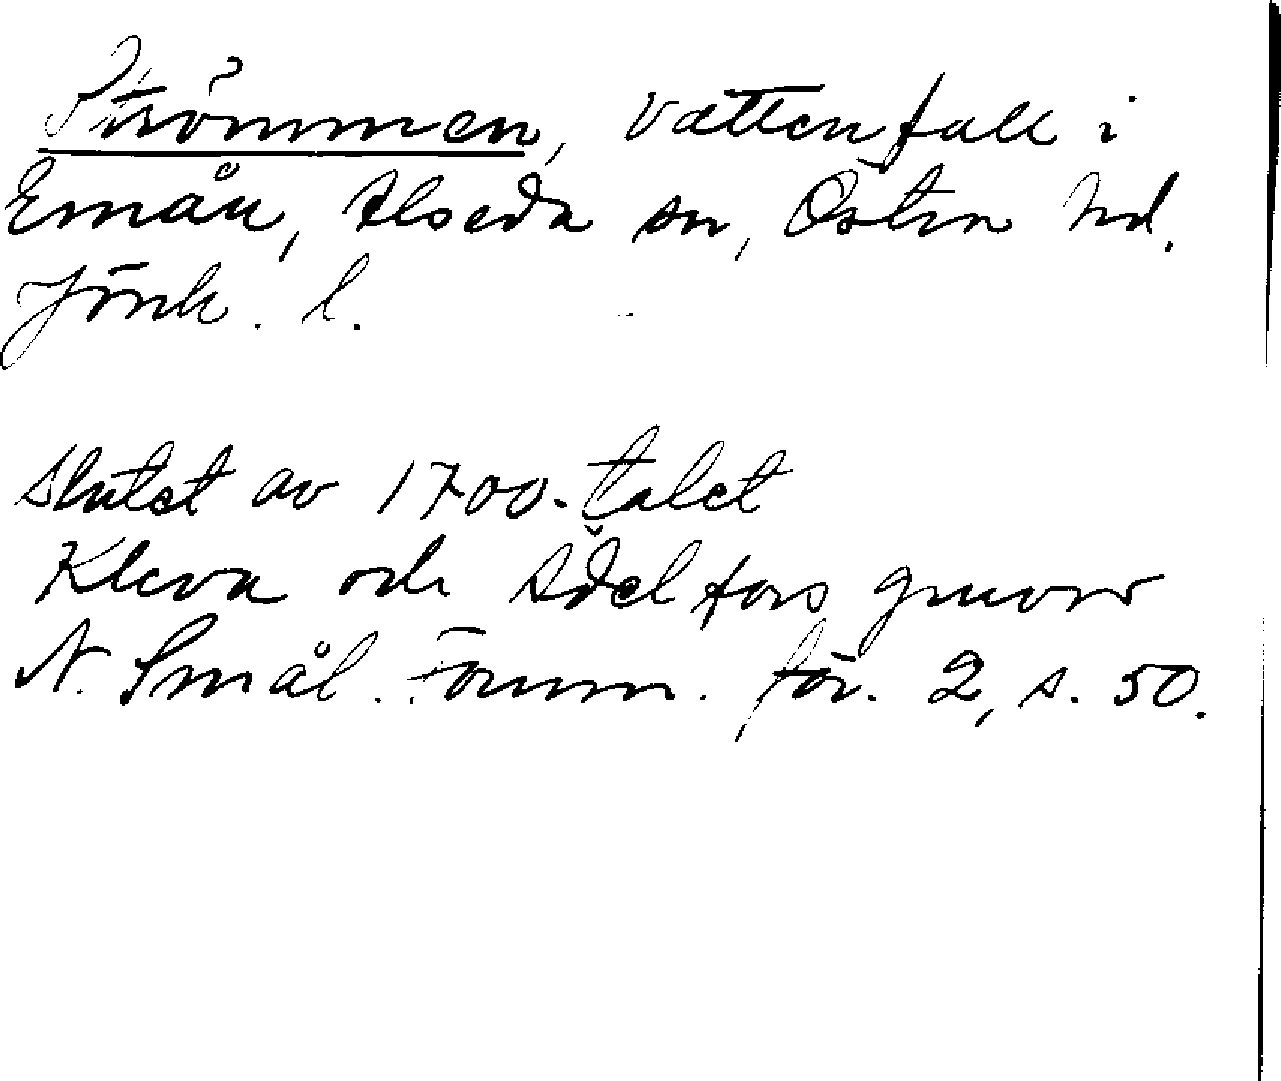 Strömmen, vattenfall i
Emån, Alseda sn, Östra hd.
Jönk. l.
Slutet av 1700-talet
Kleva och Ädelfors gruvor
N. Smål. Fornm. för. 2, s. 50.